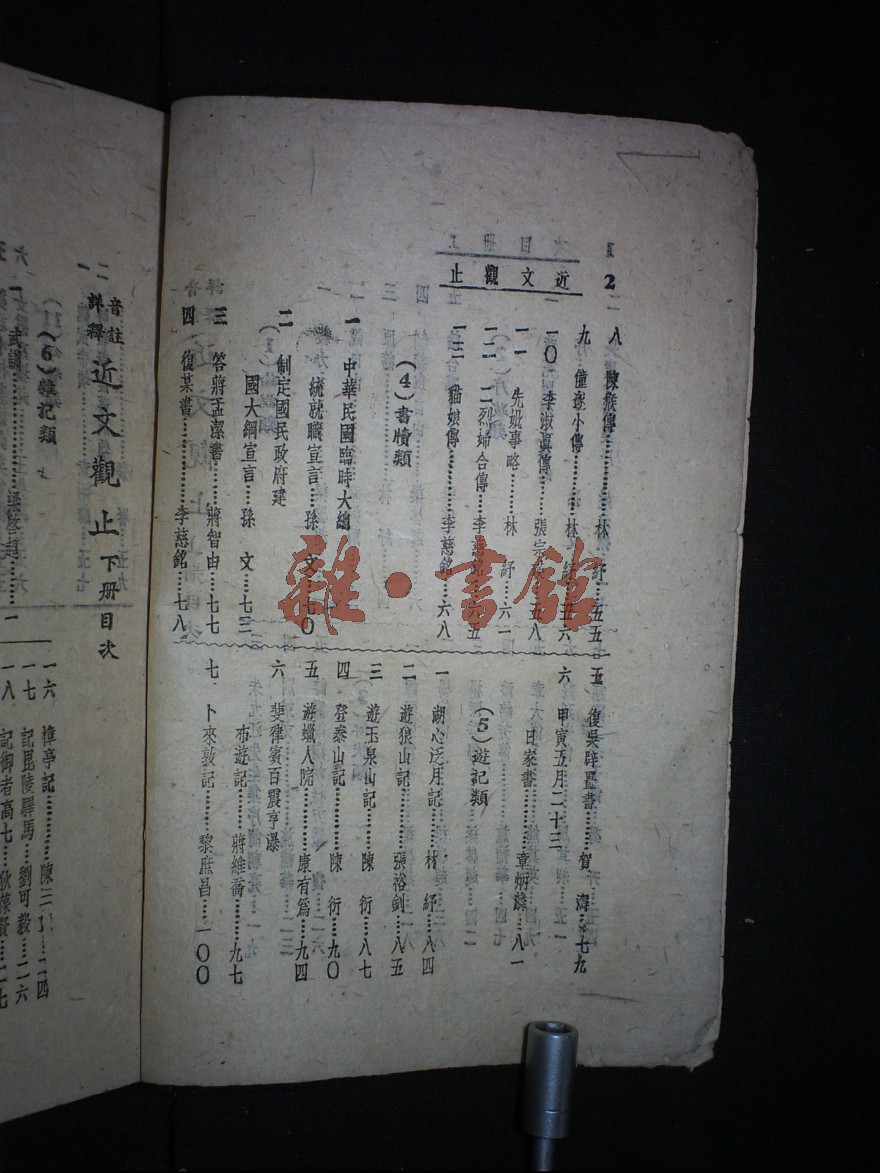 近文觀止
2
八 陳猴傳………林 紓…五五
九 僮遂小傳……林 紓…五六
一〇 李淑眞傳……張宗瑛…五八
一一 先妣事略……林 紓…六一
一二 二烈婦合傳……李慈銘…六五
一三 貓娘傳………李慈銘…六八
(4)書牘類
一 中華民國臨時大總
統就職宣言…孫 文…七〇
二 制定國民政府建
國大綱宣言…孫 文…七三
三 答蔣孟潔書……蔣智由…七七
四 復某書………李慈銘…七八
五 復吳辟畺書……賀 濤…七九
六 甲寅五月二十三
日家書………章炳麟…八一
(5)遊記類
一 湖心泛月記……林 紓…八四
二 遊狼山記………張裕釗…八五
三 遊玉泉山記……陳 衍…八七
四 登泰山記………陳 衍…九〇
五 遊蠟人院………康有爲…九四
六 斐律賓百震亨瀑
布遊記………蔣維喬…九七
七 卜來敦記………黎庶昌…一〇〇
音註
詳釋
近文觀止下册目次
(6)雜記類
一 武訓………梁啓超………一
一六 樟亭記
一七 記毘陵驛馬……劉可毅…二六
一八 記御者高七
雜·書館